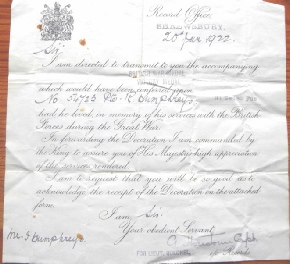 Record Office,
SHREWSBURY.
20 Jan 1922.
Sir
I am directed to transmit to you the accompanying
which would have been conferred upon
No 54735 Pte. R. Humphreys
had he lived, in memory of his services with the British
Forces during the Great War.
In forwarding the Decoration I am commanded by
the King to assure you of His Majesty's high appreciation
of the services rendered.
I am to request that you will be so good as to
acknowledge the receipt of the Decoration on the attached
form.
I am Sir,
Your obedient Servant,
Mr. J. Humphreys
FOR LIEUT.